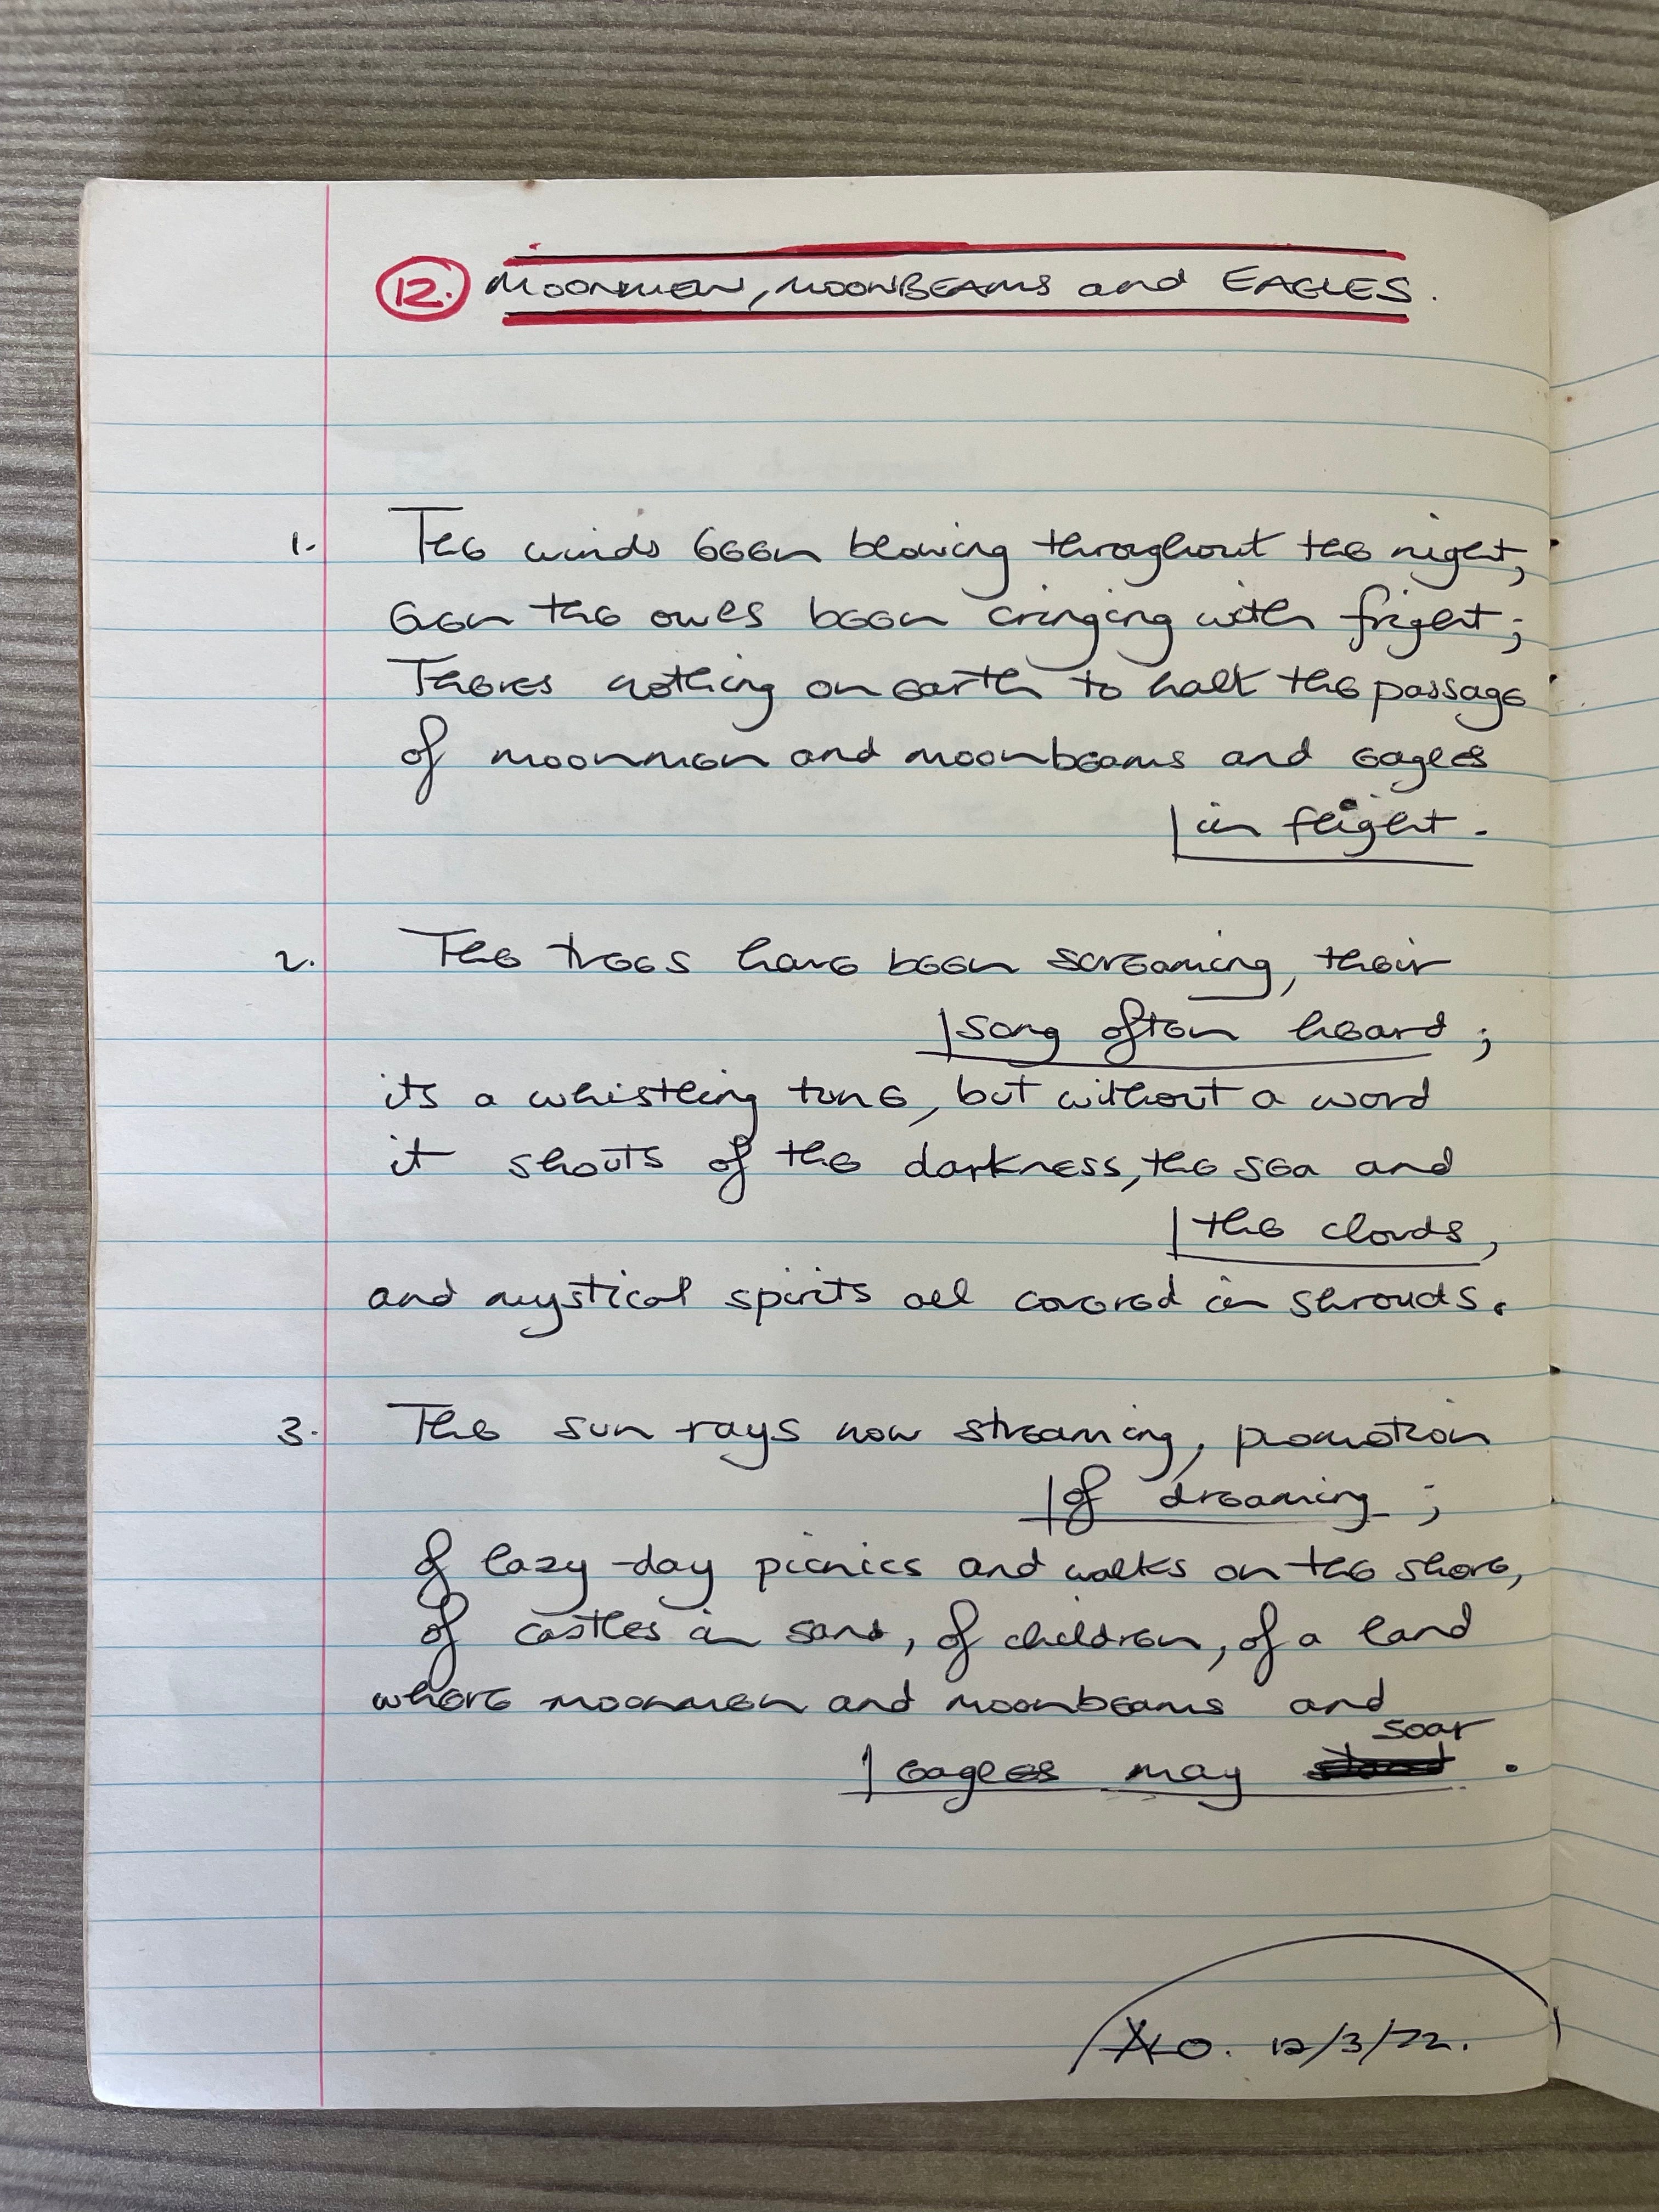 12. MOONMEN, MOONBEAMS and EAGLES.
1. The winds been blowing throughout the night,
een the owls been cringing with fright;
Theres nothing on earth to halt the passage
of moonmen and moonbeams and eagles
in flight.
2. The trees have been screaming, their
song often heard;
its a whistling tune, but without a word
it shouts of the darkness, the sea and
the clouds,
and mystical spirits all covered in shrouds.
3. The sun rays now streaming, promotion
of dreaming;
of lazy-day picnics and walks on the shore,
of castles in sand, of children, of a land
where moonmen and moonbeams and
soar
eagles may .
12/3/72.